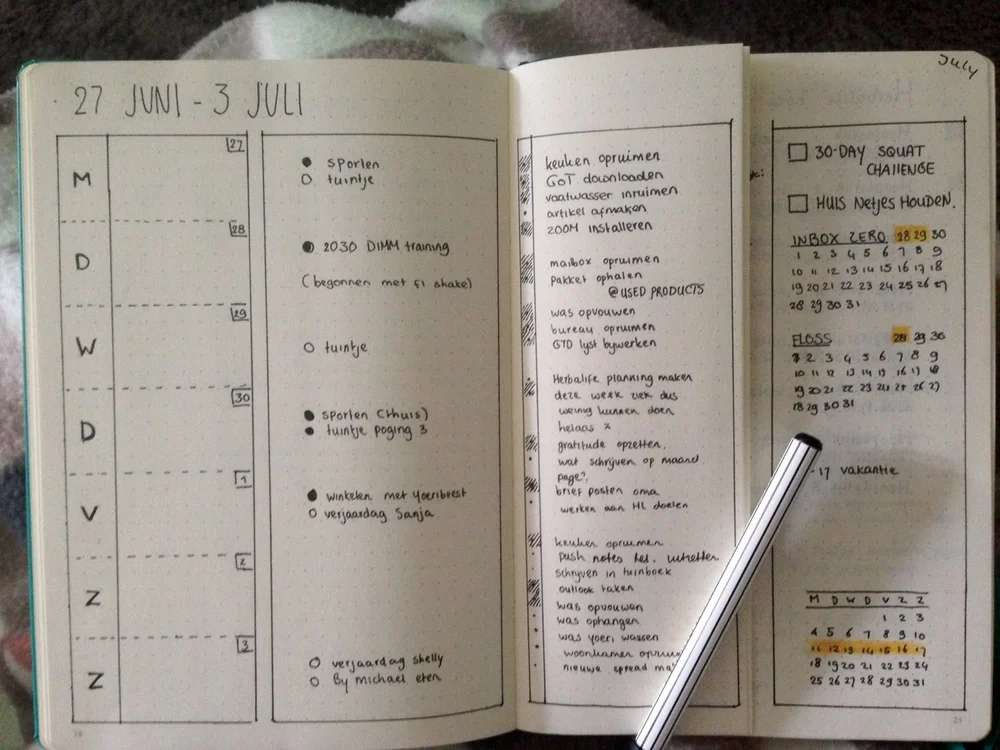 27 JUNI - 3 JULI
M
27
D
28
W
29
D
30
V
1
Z
2
Z
3
sporten
tuintje
2030 DIMM training
(begonnen met F1 shake)
tuintje
sporten (thuis)
tuintje poging 3
winkelen met Yoeribeest
verjaardag Sanja
verjaardag Shelly
By michael eten
18
keuken opruimen
GoT downloaden
vaatwasser inruimen
artikel afmaken
ZOOM installeren
mailbox opruimen
Pakket ophalen
@USED PRODUCTS
was opvouwen
bureau opruimen
GTD lyst bywerken
Herbalife planning maken
deze week ziek dus
weinig kunnen doen
helaas
gratitude opzetten.
wat schrijven op maand
page?
brief posten oma
werken aan HL doelen
keuken opruimen
push notes
schryven in tuinboek
outlook taken
was opvouwen
was ophangen
was yoeri wassen
woonkamer
nieuwe spread
July
30-DAY SQUAT
CHALLENGE
HUIS Netjes HOUDEN.
INBOX ZERO 28 29 30
1 2 3 4 5 6 7 8 9
10 11 12 13 14 15 16 17 18
19 20 21 22 23 24 25 26 27
28 29 30 31
FLOSS 28 29 30
1 2 3 4 5 6 7 8 9
10 11 12 13 14 15 16 17 18
19 20 21 22 23 24 25 26 27
28 29 30 31
-17 vakantie
M D W D V Z Z
1 2 3
4 5 6 7 8 9 10
11 12 13 14 15 16 17
18 19 20 21 22 23 24
25 26 27 28 29 30 31
21